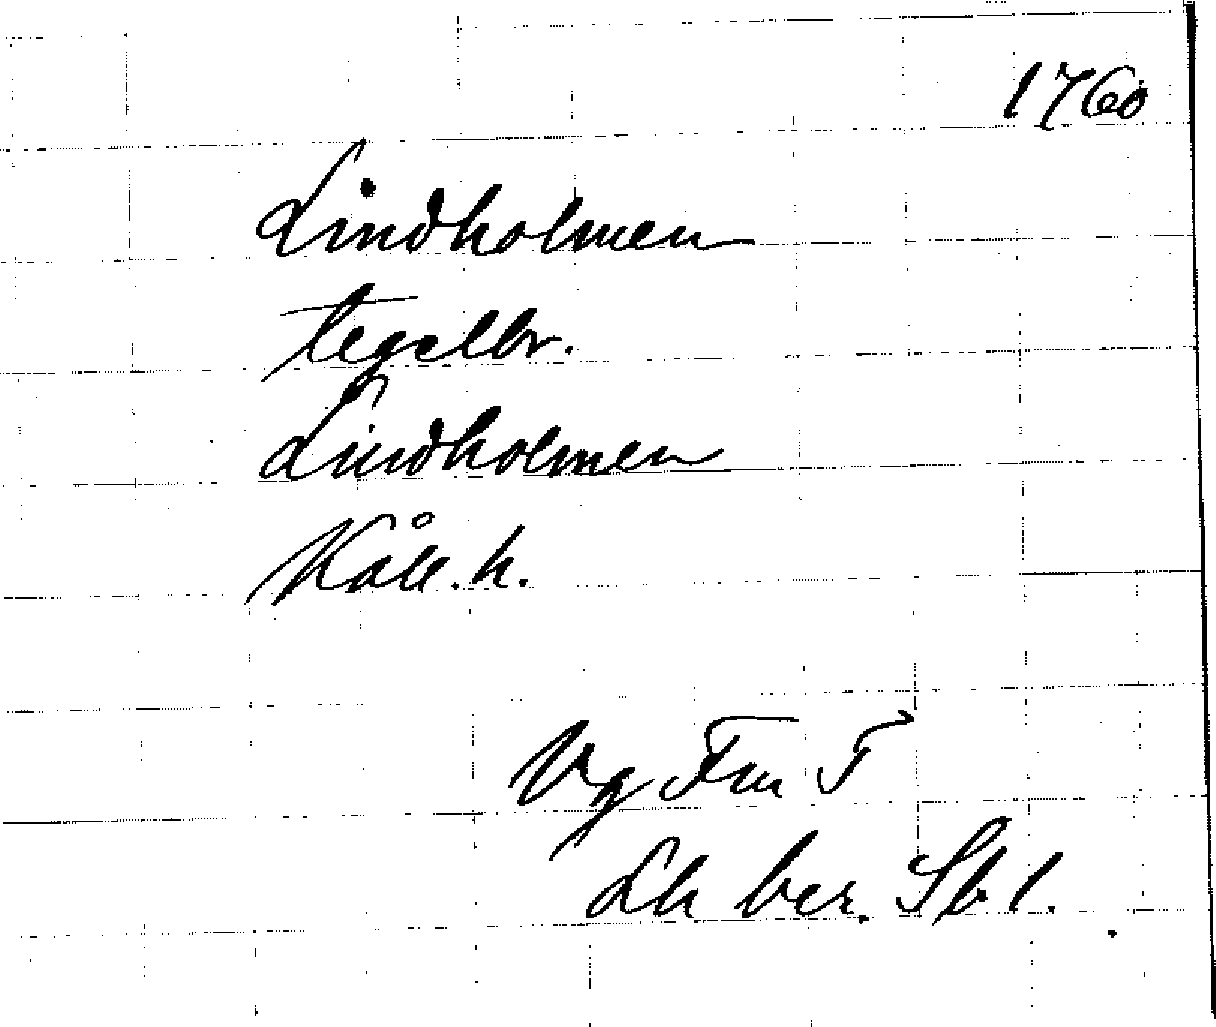 1760
Lindholmen
tegelbr.
Lindholmen
Kåll. h.
Vg Fru T
Lh ber. Sb 1.